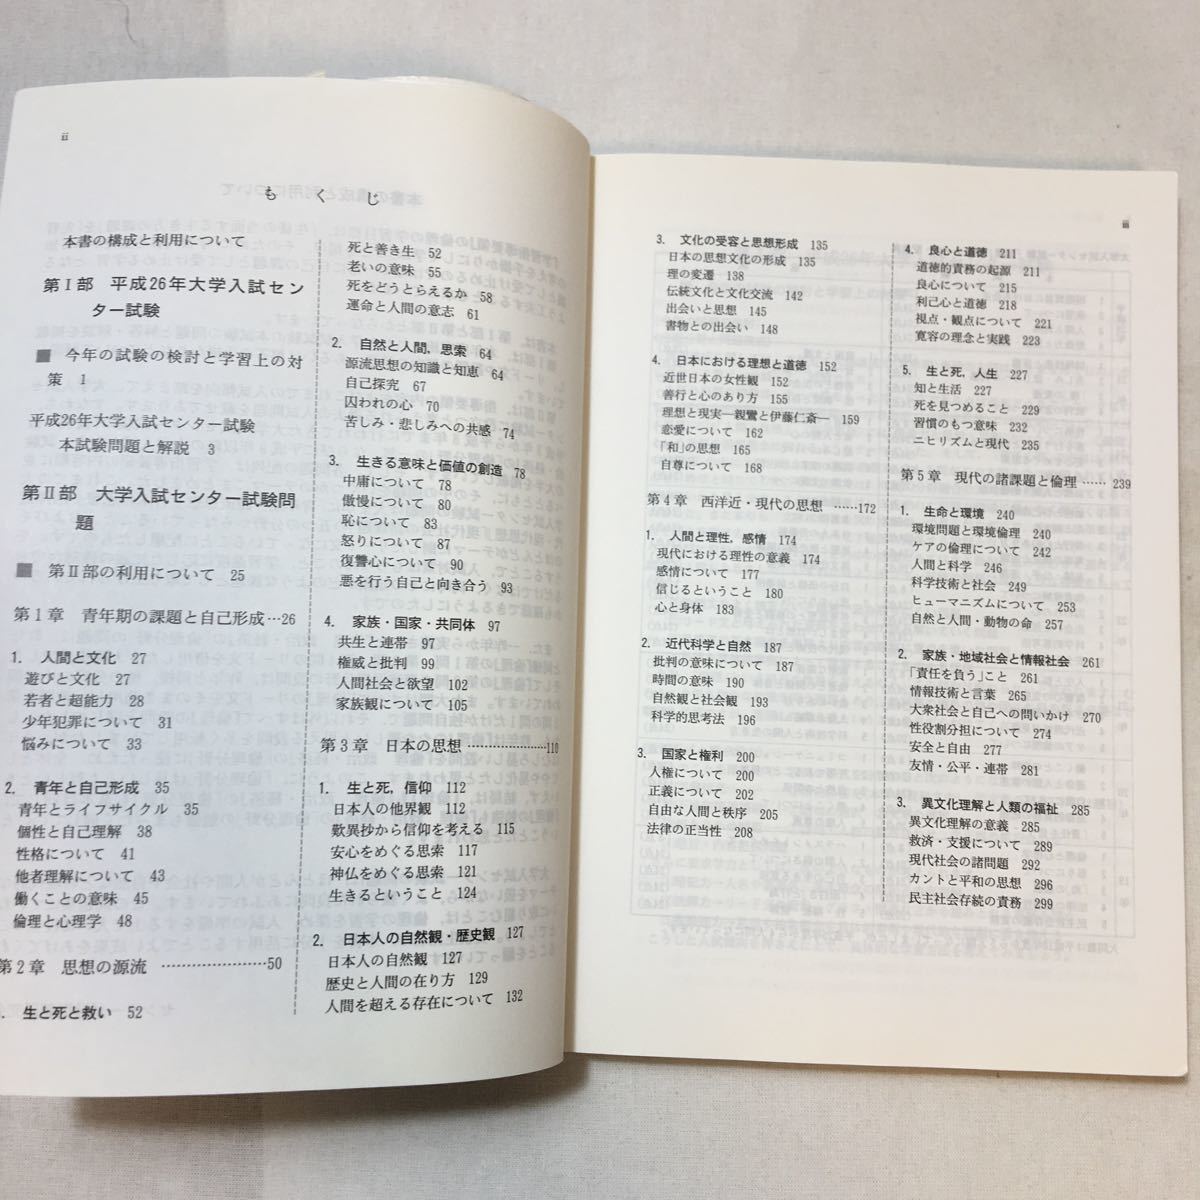 ii
もくじ
本書の構成と利用について
第Ⅰ部 平成26年大学入試セン
ター試験
■ 今年の試験の検討と学習上の対
策 1
平成26年大学入試センター試験
本試験問題と解説 3
第Ⅱ部 大学入試センター試験問
題
■ 第Ⅱ部の利用について 25
第1章 青年期の課題と自己形成…26
1. 人間と文化 27
遊びと文化 27
若者と超能力 28
少年犯罪について 31
悩みについて 33
2. 青年と自己形成 35
青年とライフサイクル 35
個性と自己理解 38
性格について 41
他者理解について 43
働くことの意味 45
倫理と心理学 48
第2章 思想の源流 ………………50
. 生と死と救い 52
死と善き生 52
老いの意味 55
死をどうとらえるか 58
運命と人間の意志 61
2. 自然と人間，思索 64
源流思想の知識と知恵 64
自己探究 67
囚われの心 70
苦しみ・悲しみへの共感 74
3. 生きる意味と価値の創造 78
中庸について 78
傲慢について 80
恥について 83
怒りについて 87
復讐心について 90
悪を行う自己と向き合う 93
4. 家族・国家・共同体 97
共生と連帯 97
権威と批判 99
人間社会と欲望 102
家族観について 105
第3章 日本の思想 …………………110
1. 生と死，信仰 112
日本人の他界観 112
歎異抄から信仰を考える 115
安心をめぐる思索 117
神仏をめぐる思索 121
生きるということ 124
2. 日本人の自然観・歴史観 127
日本人の自然観 127
歴史と人間の在り方 129
人間を超える存在について 132
iii
3. 文化の受容と思想形成 135
日本の思想文化の形成 135
理の変遷 138
伝統文化と文化交流 142
出会いと思想 145
書物との出会い 148
4. 日本における理想と道徳 152
近世日本の女性観 152
善行と心のあり方 155
理想と現実―親鸞と伊藤仁斎― 159
恋愛について 162
「和」の思想 165
自尊について 168
第4章 西洋近・現代の思想 ……172
1. 人間と理性，感情 174
現代における理性の意義 174
感情について 177
信じるということ 180
心と身体 183
2. 近代科学と自然 187
批判の意味について 187
時間の意味 190
自然観と社会観 193
科学的思考法 196
3. 国家と権利 200
人権について 200
正義について 202
自由な人間と秩序 205
法律の正当性 208
4. 良心と道徳 211
道徳的責務の起源 211
良心について 215
利己心と道徳 218
視点・観点について 221
寛容の理念と実践 223
5. 生と死，人生 227
知と生活 227
死を見つめること 229
習慣のもつ意味 232
ニヒリズムと現代 235
第5章 現代の諸課題と倫理 …… 239
1. 生命と環境 240
環境問題と環境倫理 240
ケアの倫理について 242
人間と科学 246
科学技術と社会 249
ヒューマニズムについて 253
自然と人間・動物の命 257
2. 家族・地域社会と情報社会 261
「責任を負う」こと 261
情報技術と言葉 265
大衆社会と自己への問いかけ 270
性役割分担について 274
安全と自由 277
友情・公平・連帯 281
3. 異文化理解と人類の福祉 285
異文化理解の意義 285
救済・支援について 289
現代社会の諸問題 292
カントと平和の思想 296
民主社会存続の責務 299